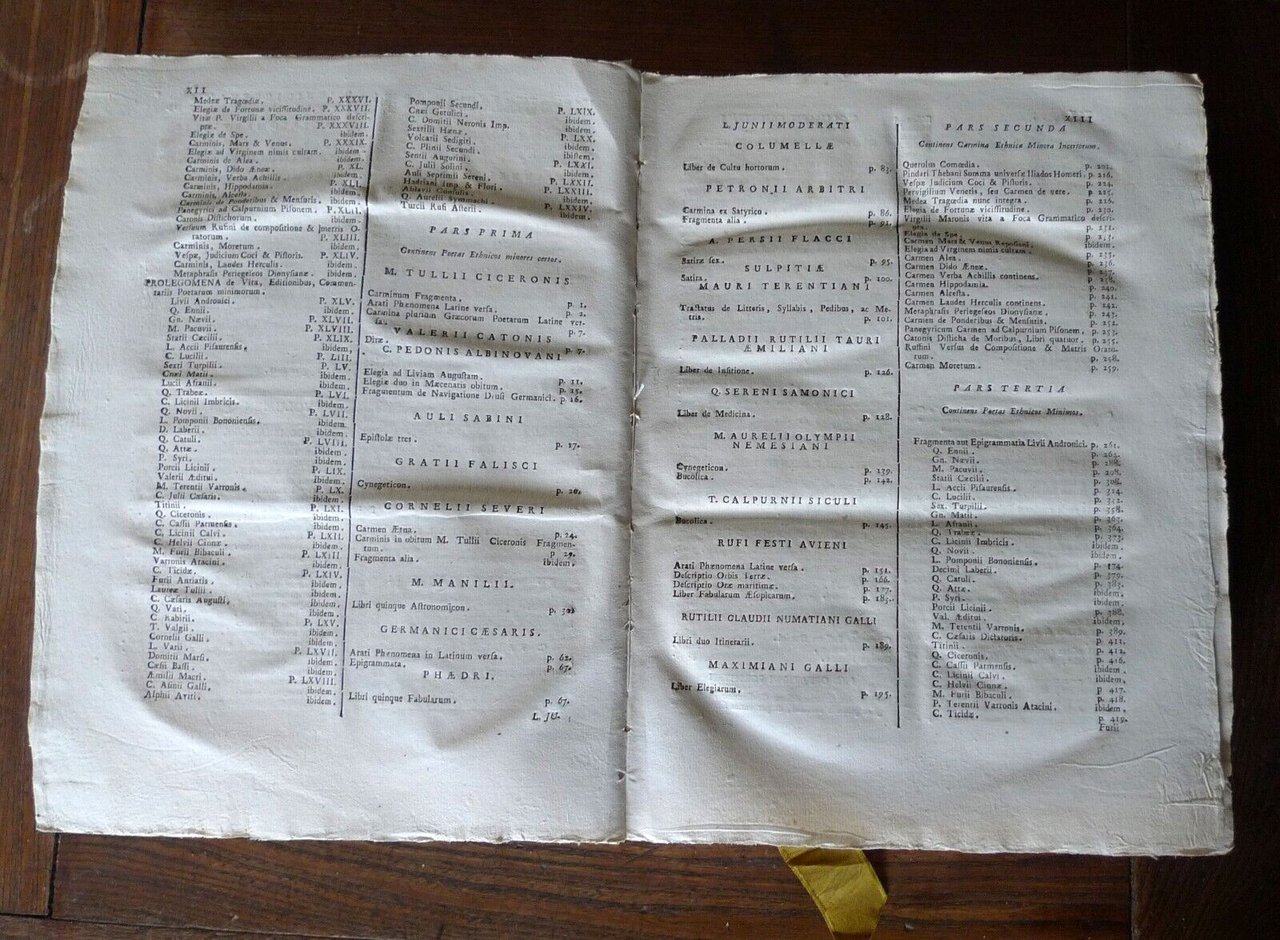 XII
Medeæ Tragœdiæ. P. XXXVI.
Elegiæ de Fortunæ vicissitudine. P. XXXVII.
Vitæ P. Virgilii a Foca Grammatico descri-
ptæ. P. XXXVIII.
Elegiæ de Spe. ibidem.
Carminis, Mars & Venus. P. XXXIX.
Elegiæ ad Virginem nimis cultam. ibidem.
Carminis de Alea. P. XL.
Carminis, Dido Æneæ. ibidem.
Carminis, Verba Achillis. ibidem.
Carminis, Hippodamia. P. XLI.
Carminis, Alcesta. ibidem.
Carminis de Ponderibus & Mensuris. ibidem.
Panegyrici ad Calpurnium Pisonem. P. XLII.
Catonis Distichorum. ibidem.
Versuum Rufini de compositione & Metris O-
ratorum. P. XLIII.
Carminis, Moretum. ibidem.
Vespæ, Judicium Coci & Pistoris. P. XLIV.
Carminis, Laudes Herculis. ibidem.
Metaphrasis Periegeseos Dionysianæ. ibidem.
PROLEGOMENA de Vita, Editionibus, Commen-
tariis Poetarum minimorum.
Livii Andronici. P. XLV.
Q. Ennii. ibidem.
Gn. Nævii. P. XLVII.
M. Pacuvii. P. XLVIII.
Statii Cæcilii. P. XLIX.
L. Accii Pisaurensis. ibidem.
C. Lucilii. P. LIII.
Sexti Turpilii. P. LV.
Cnæi Matii. ibidem.
Lucii Afranii. ibidem.
Q. Trabeæ. P. LVI.
C. Licinii Imbricis. ibidem.
Q. Novii. P. LVII.
L. Pomponii Bononiensis. ibidem.
D. Laberii. ibidem.
Q. Catuli. P. LVIII.
Q. Attæ. ibidem.
P. Syri. ibidem.
Porcii Licinii. P. LIX.
Valerii Æditui. ibidem.
M. Terentii Varronis. P. LX.
C. Julii Cæsaris. ibidem.
Titinii. P. LXI.
Q. Ciceronis. ibidem.
C. Cassii Parmensis. ibidem.
C. Licinii Calvi. P. LXII.
C. Helvii Cinnæ. ibidem.
M. Furii Bibaculi. P. LXIII.
Varronis Atacini. ibidem.
C. Ticidæ. P. LXIV.
Furii Antiatis. ibidem.
Laureæ Tullii. ibidem.
C. Cæsaris Augusti. ibidem.
Q. Vari. ibidem.
C. Rabirii. P. LXV.
T. Valgii. ibidem.
Cornelii Galli. ibidem.
L. Varii. P. LXVII.
Domitii Marsi. ibidem.
Cæsii Bassi. ibidem.
Æmilii Macri. P. LXVIII.
C. Asinii Galli. ibidem.
Alphii Aviti. ibidem.
Pomponii Secundi. P. LXIX.
Cnæi Getulici. ibidem.
C. Domitii Neronis Imp. ibidem.
Sextilii Hænæ. P. LXX.
Volcatii Sedigiti. ibidem.
C. Plinii Secundi. ibidem.
Sentii Augurini. P. LXXI.
C. Julii Solini. ibidem.
Auli Septimii Sereni. P. LXXII.
Hadriani Imp. & Flori. P. LXXIII.
Ablavii Consulis. ibidem.
Q. Aurelii Symmachi. P. LXXIV.
Turcii Rufi Asterii. ibidem.
PARS PRIMA
Continens Poetas Ethnicos minores certos.
M. TULLII CICERONIS
Carminum Fragmenta. p. 1.
Arati Phænomena Latine versa. p. 2.
Carmina plurium Græcorum Poetarum Latine ver-
sa. p. 7.
VALERII CATONIS
Diræ. p. 7.
C. PEDONIS ALBINOVANI
Elegia ad Liviam Augustam. p. 11.
Elegiæ duo in Mæcenatis obitum. p. 15.
Fragmentum de Navigatione Drusi Germanici. p. 16.
AULI SABINI
Epistolæ tres. p. 17.
GRATII FALISCI
Cynegeticon. p. 20.
CORNELII SEVERI
Carmen Ætna. p. 24.
Carminis in obitum M. Tullii Ciceronis Fragmen-
tum. p. 29.
Fragmenta alia. ibidem.
M. MANILII.
Libri quinque Astronomicon. p. 30.
GERMANICI CÆSARIS.
Arati Phænomena in Latinum versa. p. 62.
Epigrammata. p. 67.
PHÆDRI.
Libri quinque Fabularum. p. 67.
L. JU.
XIII
L. JUNII MODERATI
COLUMELLÆ
Liber de Cultu hortorum. p. 83.
PETRONII ARBITRI
Carmina ex Satyrico. p. 86.
Fragmenta alia. p. 92.
A. PERSII FLACCI
Satiræ sex. p. 95.
SULPITIÆ
Satira. p. 100.
MAURI TERENTIANI
Tractatus de Litteris, Syllabis, Pedibus, ac Me-
tris. p. 101.
PALLADII RUTILII TAURI
ÆMILIANI
Liber de Insitione. p. 126.
Q. SERENI SAMONICI
Liber de Medicina. p. 128.
M. AURELII OLYMPII
NEMESIANI
Cynegeticon. p. 139.
Bucolica. p. 142.
T. CALPURNII SICULI
Bucolica. p. 145.
RUFI FESTI AVIENI
Arati Phænomena Latine versa. p. 151.
Descriptio Orbis Terræ. p. 166.
Descriptio Oræ maritimæ. p. 177.
Liber Fabularum Æsopicarum. p. 185.
RUTILII CLAUDII NUMATIANI GALLI
Libri duo Itinerarii. p. 189.
MAXIMIANI GALLI
Liber Elegiarum. p. 195.
PARS SECUNDA
Continens Carmina Ethnica Minora Incertorum.
Querolus Comœdia. p. 201.
Pindari Thebani Summa universæ Iliados Homeri. p. 216.
Vespæ Judicium Coci & Pistoris. p. 224.
Pervigilium Veneris, seu Carmen de vere. p. 225.
Medea Tragœdia nunc integra. p. 226.
Elegia de Fortunæ vicissitudine. p. 230.
Virgilii Maronis vita a Foca Grammatico descri-
pta. p. 231.
Elegia de Spe.
Carmen Mars & Venus Reposiani. ibidem.
Elegia ad Virginem nimis cultam. p. 235.
Carmen Alea. p. 236.
Carmen Dido Æneæ. p. 237.
Carmen Verba Achillis continens. p. 238.
Carmen Hippodamia. p. 240.
Carmen Alcesta. p. 241.
Carmen Laudes Herculis continens. p. 242.
Metaphrasis Periegeseos Dionysianæ. p. 243.
Carmen de Ponderibus & Mensuris. p. 251.
Panegyricum Carmen ad Calpurnium Pisonem. p. 253.
Catonis Disticha de Moribus, Libri quatuor. p. 255.
Ruffini Versus de Compositione & Metris Orato-
rum. p. 258.
Carmen Moretum. p. 259.
PARS TERTIA
Continens Poetas Ethnicos Minimos.
Fragmenta aut Epigrammatia Livii Andronici. p. 261.
Q. Ennii. p. 262.
Gn. Nævii. p. 288.
M. Pacuvii. p. 298.
Statii Cæcilii. p. 308.
L. Accii Pisaurensis. p. 314.
C. Lucilii. p. 332.
Sex. Turpilii. p. 358.
Gn. Matii. p. 363.
L. Afranii. p. 364.
Q. Trabeæ. p. 373.
C. Licinii Imbricis. ibidem.
Q. Novii. ibidem.
L. Pomponii Bononiensis. p. 374.
Decimi Laberii. p. 379.
Q. Catuli. p. 383.
Q. Attæ. ibidem.
P. Syri. ibidem.
Porcii Licinii. p. 388.
Val. Æditui. ibidem.
M. Terentii Varronis. p. 389.
C. Cæsaris Dictatoris. p. 411.
Titinii. p. 412.
Q. Ciceronis. p. 416.
C. Cassii Parmensis. ibidem.
C. Licinii Calvi. ibidem.
C. Helvii Cinnæ. p. 417.
M. Furii Bibaculi. p. 418.
P. Terentii Varronis Atacini. ibidem.
C. Ticidæ. p. 419.
Furii